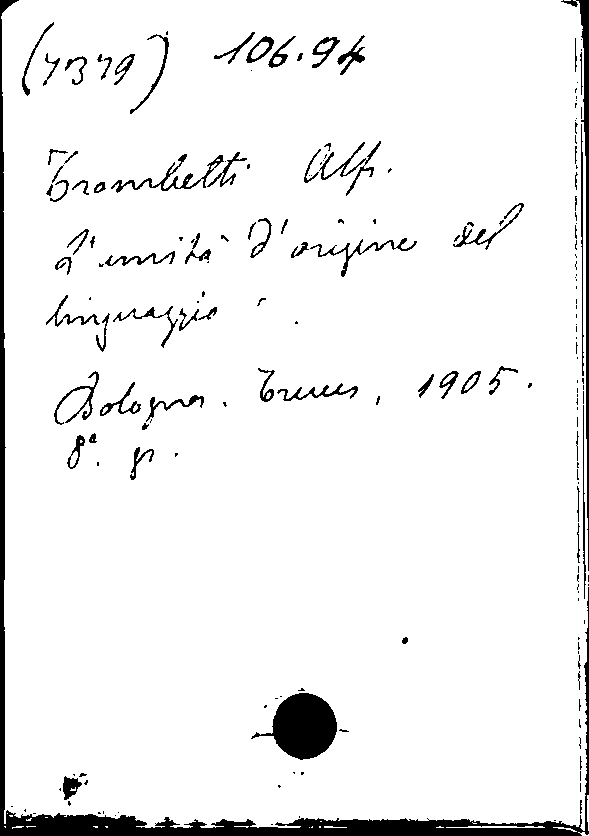 (7379) 106.94
Trombetti Alf.
L'unità d'origine del
linguaggio.
Bologna. Treves, 1905.
8°. gr.